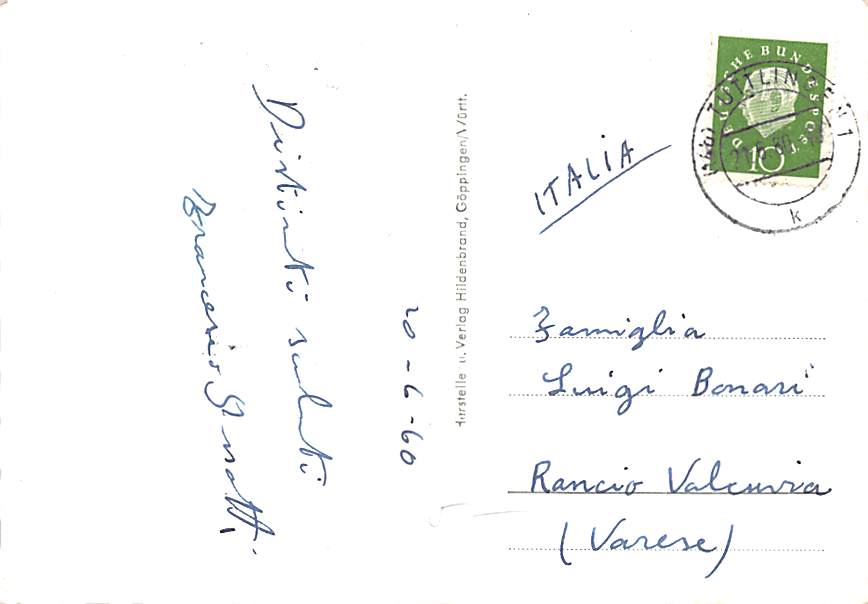 Distinti saluti
Francesco
20-6-60
Herstelle u. Verlag Hildenbrand, Göppingen/Württ.
DEUTSCHE BUNDESPOST
10
TUTTLINGEN 1
k
ITALIA
Famiglia
Luigi Bonari
Rancio Valcuvia
(Varese)